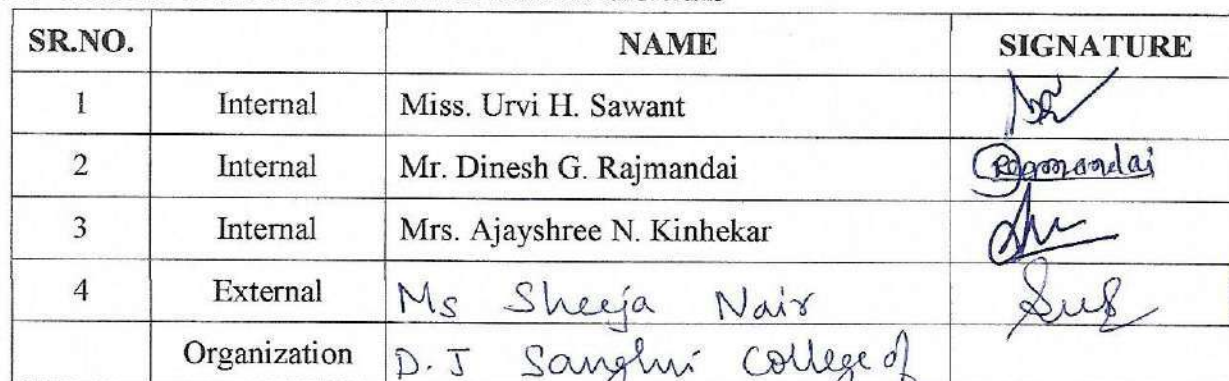 SR.NO. NAME SIGNATURE
1 Internal Miss. Urvi H. Sawant
2 Internal Mr. Dinesh G. Rajmandai Rajmandai
3 Internal Mrs. Ajayshree N. Kinhekar
4 External Ms Sheeja Nair
Organization D.J Sanghvi College of